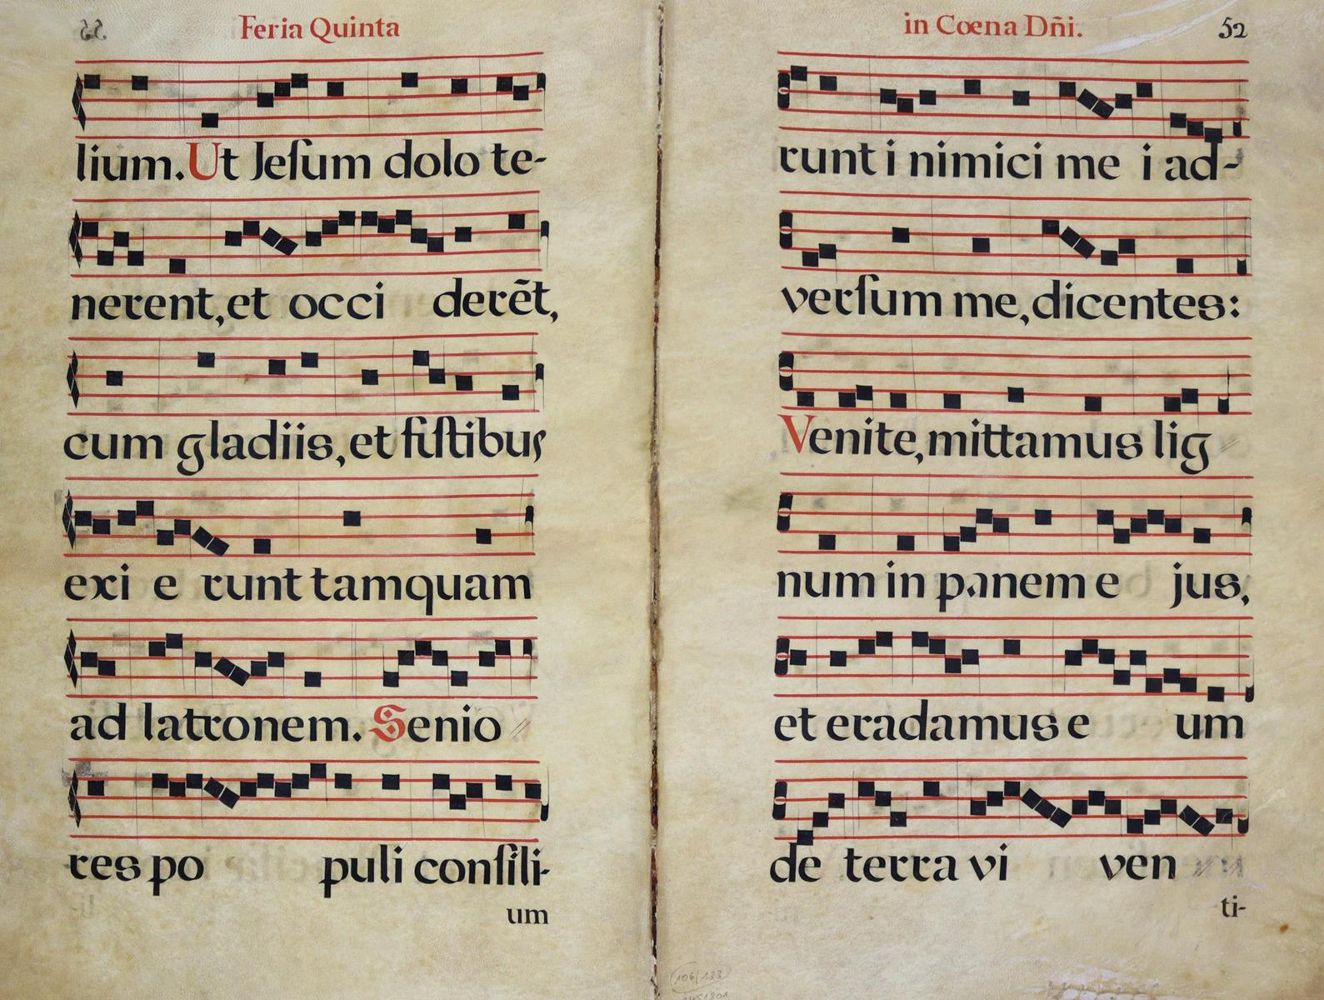 Feria Quinta
lium. Ut Jeſum dolo te-
nerent, et occi derẽt,
cum gladiis, et fuſtibus
exi e runt tamquam
ad latronem. Senio
res po puli conſili-
um
in Coena Dñi.
52
runt i nimici me i ad-
verſum me, dicentes:
Venite, mittamus lig
num in panem e jus,
et eradamus e um
de terra vi ven
ti-